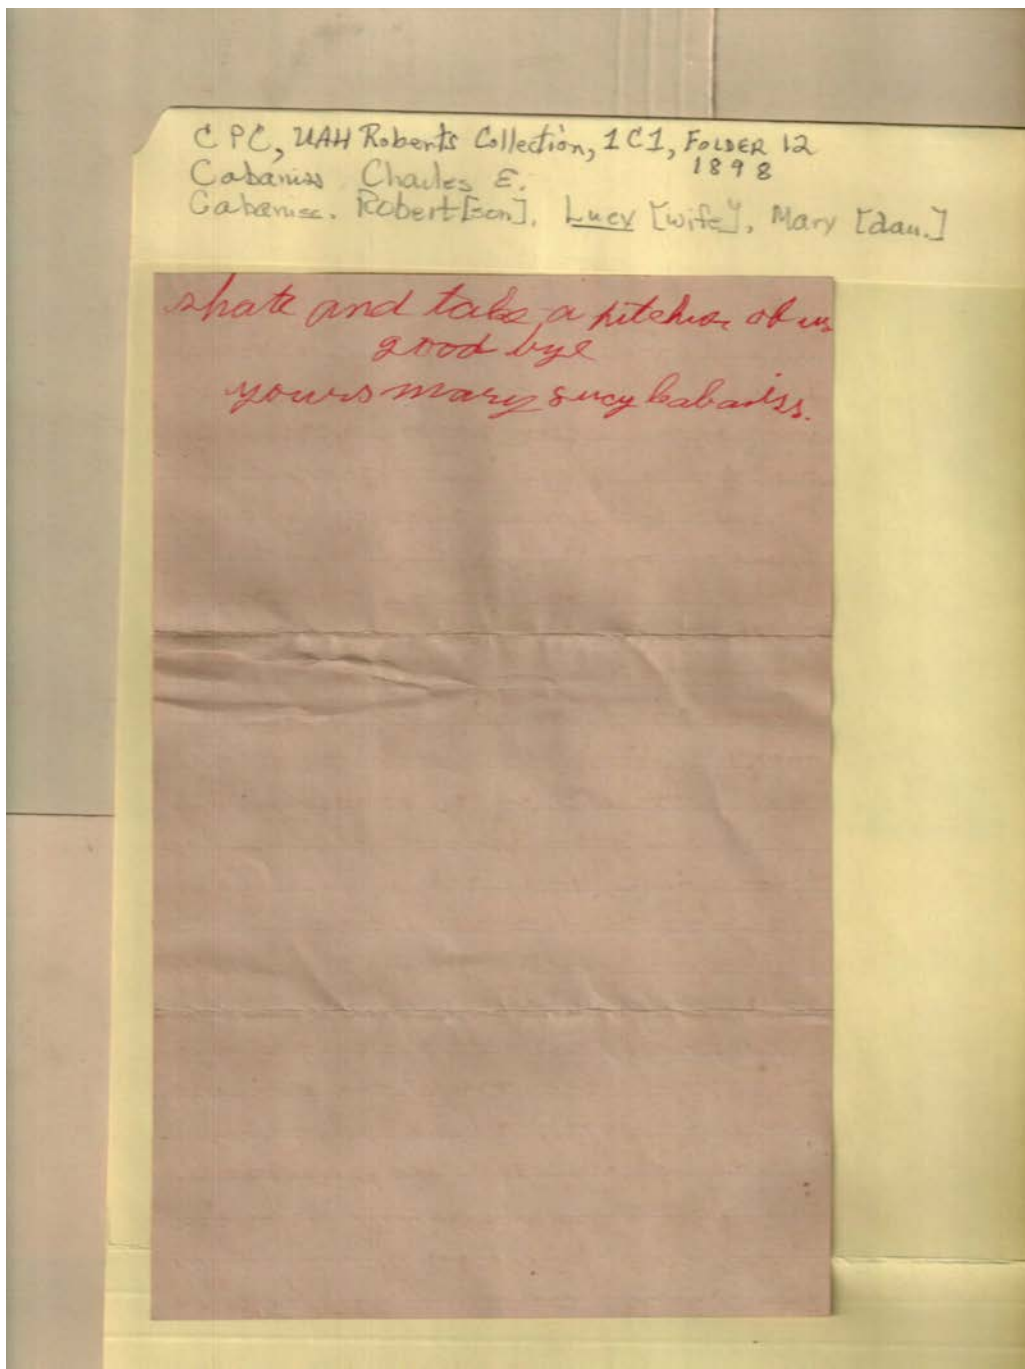 C P C, UAH Roberts Collection, 1C1, FOLDER 12
1898
Cabaniss Charles E.
Cabaniss. Robert [son], Lucy [wife], Mary [dau.]
and take a pitcher of us
good bye
yours mary Lucy Cabaniss.